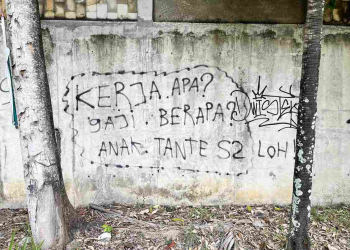 KERJA APA?
gAji BERAPA?
ANAK TANTE S2 LOH!